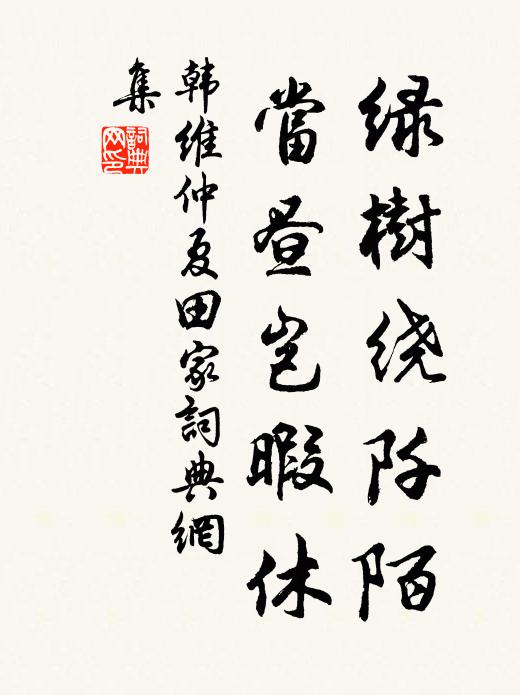 绿樹绕阡陌
當昼岂暇休
韩维仲夏田家詞典網
集
詞典网印